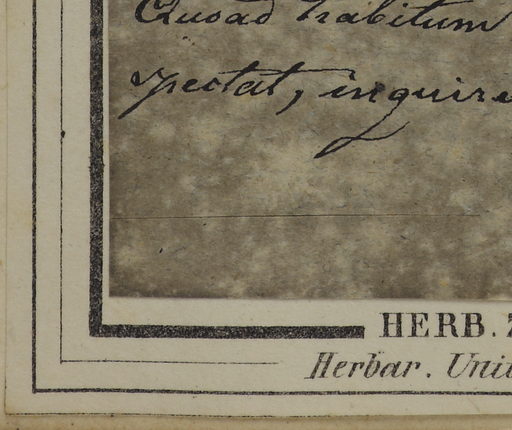 Quoad habitum
spectat, inquire
HERB. Z
Herbar. Uni